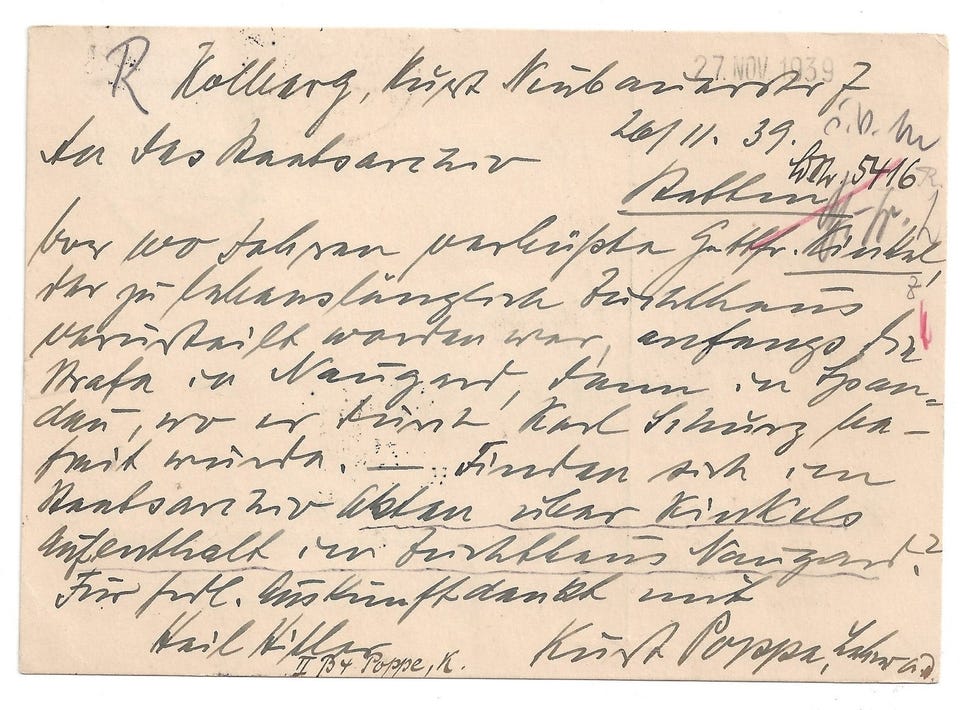 R Kolberg, Kurt Neubauerstr 7
27. NOV. 1939
26/11. 39.
An das Staatsarchiv
5416
Stettin
Vor 90 Jahren verbüßte Gottfr. Kinkel,
der zu lebenslänglich Zuchthaus
verurteilt worden war, anfangs die
Strafe in Naugard, dann in Span=
dau, wo er durch Karl Schurz be-
freit wurde. — Finden sich im
Staatsarchiv Akten über Kinkels
Aufenthalt im Zuchthaus Naugard?
Für frdl. Auskunft dankt mit
Heil Hitler
Kurt Poppe, Lehrer a.D.
II B4 Poppe, K.